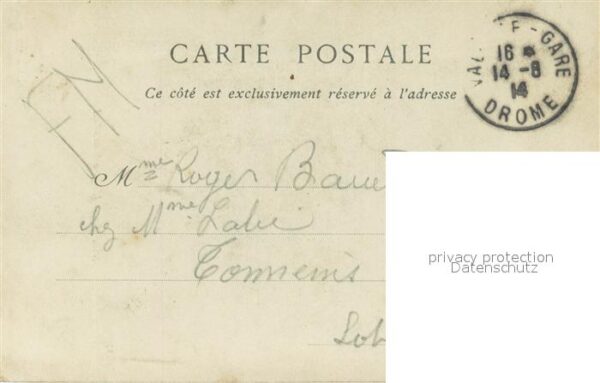 FM
CARTE POSTALE
Ce côté est exclusivement réservé à l'adresse
VALENCE-GARE
16 *
14-8
14
DROME
Mme Roger
chez Mme Labi
Tonneins
Lot
privacy protection
Datenschutz